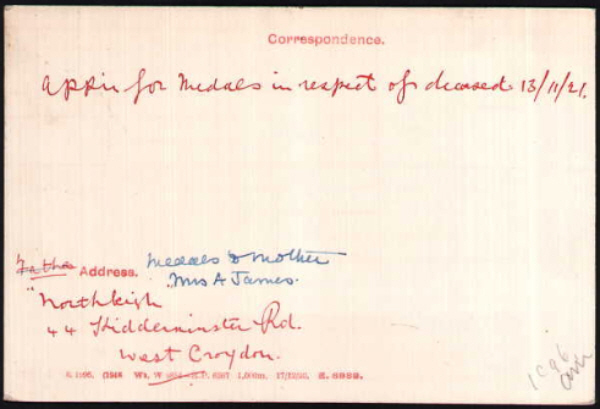 Correspondence.
Appln for Medals in respect of deceased 13/11/21.
Father Address. Medals to mother
Mrs A James.
"Northleigh
44 Kidderminster Rd.
West Croydon.
1,000m. 17/12/20. E. 6882.